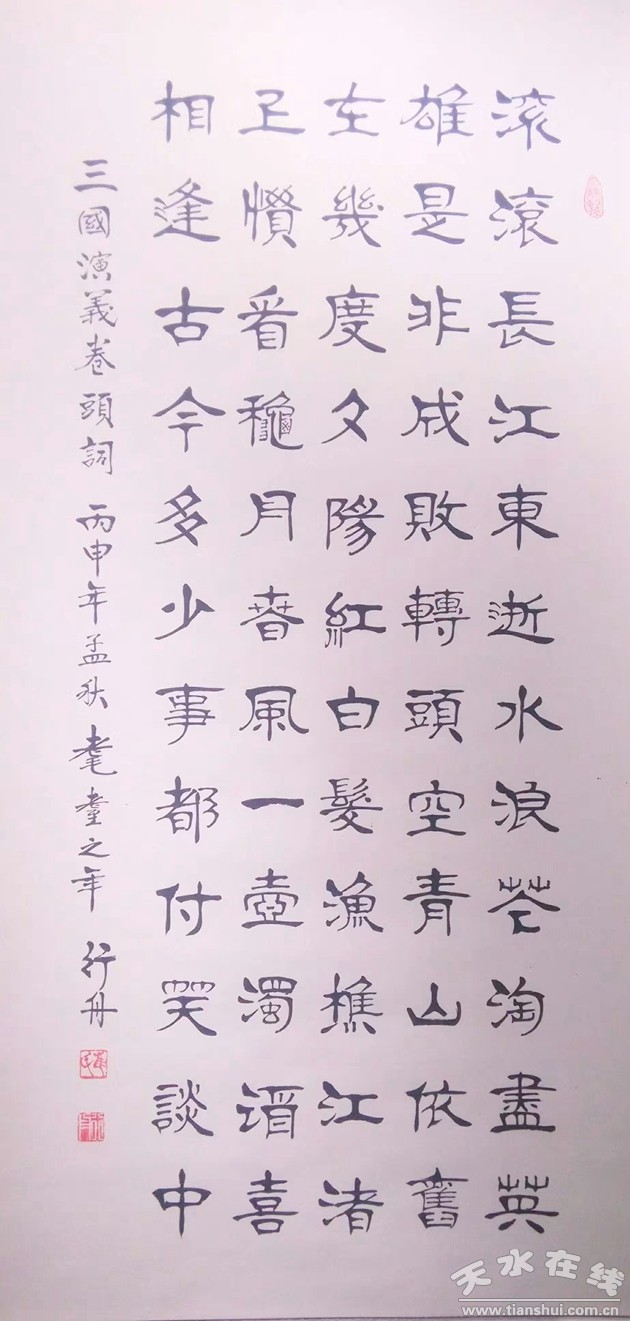 滾滾長江東逝水浪花淘盡英
雄是非成敗轉頭空青山依舊
在幾度夕陽紅白髮漁樵江渚
上慣看龝月春風一壺濁酒喜
相逢古今多少事都付笑談中
三國演義卷頭詞 丙申年孟秋 耄耋之年 行舟
天水在线
www.tianshui.com.cn